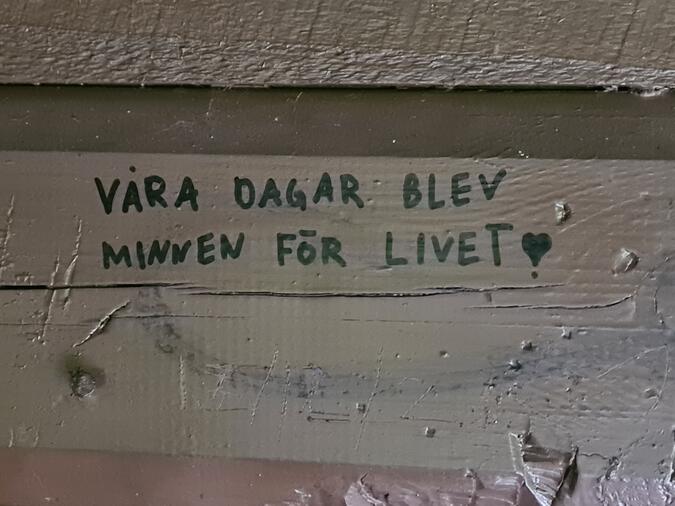 VÅRA DAGAR BLEV
MINNEN FÖR LIVET